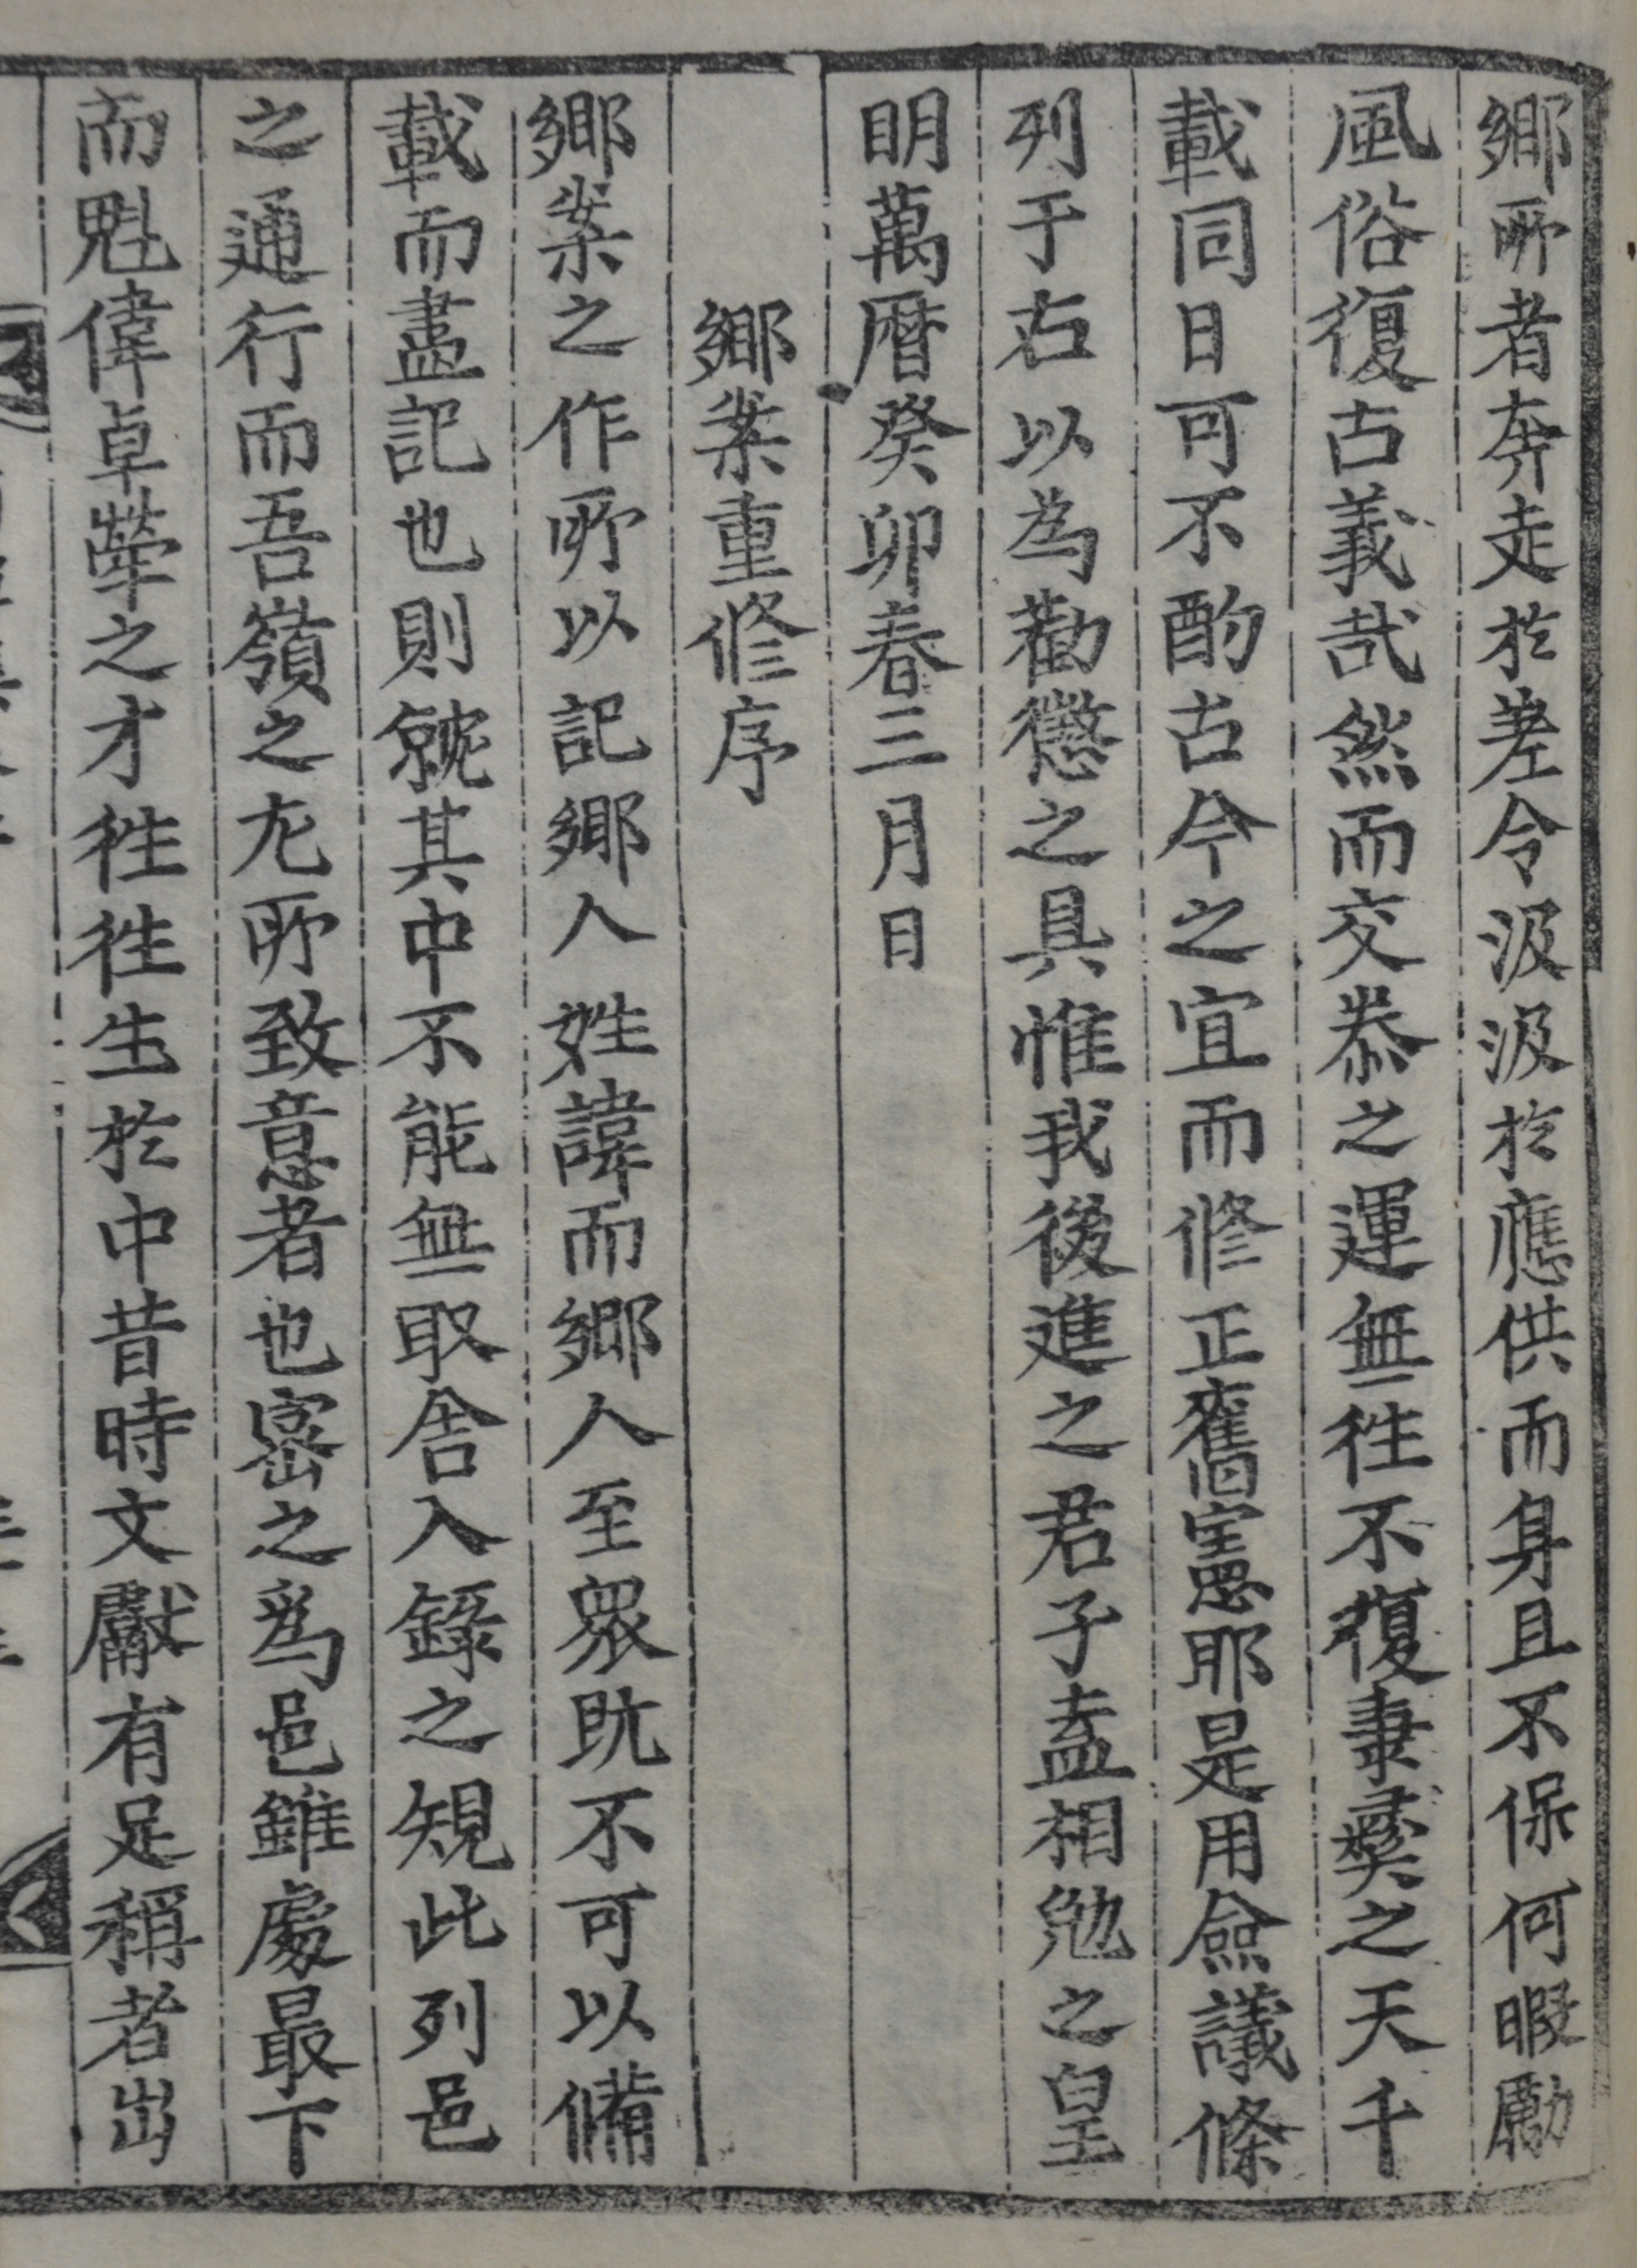 鄕所者奔走於差令汲汲於應供而身且不保何暇勵
風俗復古義哉然而交泰之運無往不復秉彛之天千
載同日可不酌古今之宜而修正舊憲耶是用僉議條
列于右以為勸懲之具惟我後進之君子盍相勉之皇
明萬曆癸卯春三月日
鄕案重修序
鄕案之作所以記鄕人姓諱而鄕人至衆旣不可以備
載而盡記也則就其中不能無取舍入錄之規此列邑
之通行而吾嶺之尤所致意者也密之爲邑雖處最下
而魁偉卓犖之才往往生於中昔時文獻有足稱者出